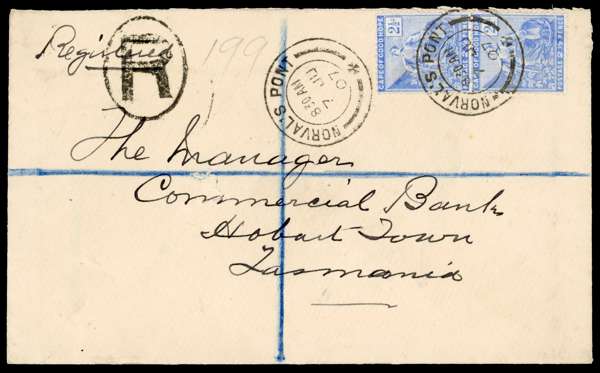 Registered
199
R
NORVAL'S PONT
8 30 AM
7 JU
07
CAPE OF GOOD HOPE
2½
NORVAL'S PONT
8 30 AM
07
The Manager
Commercial Bank
Hobart Town
Tasmania